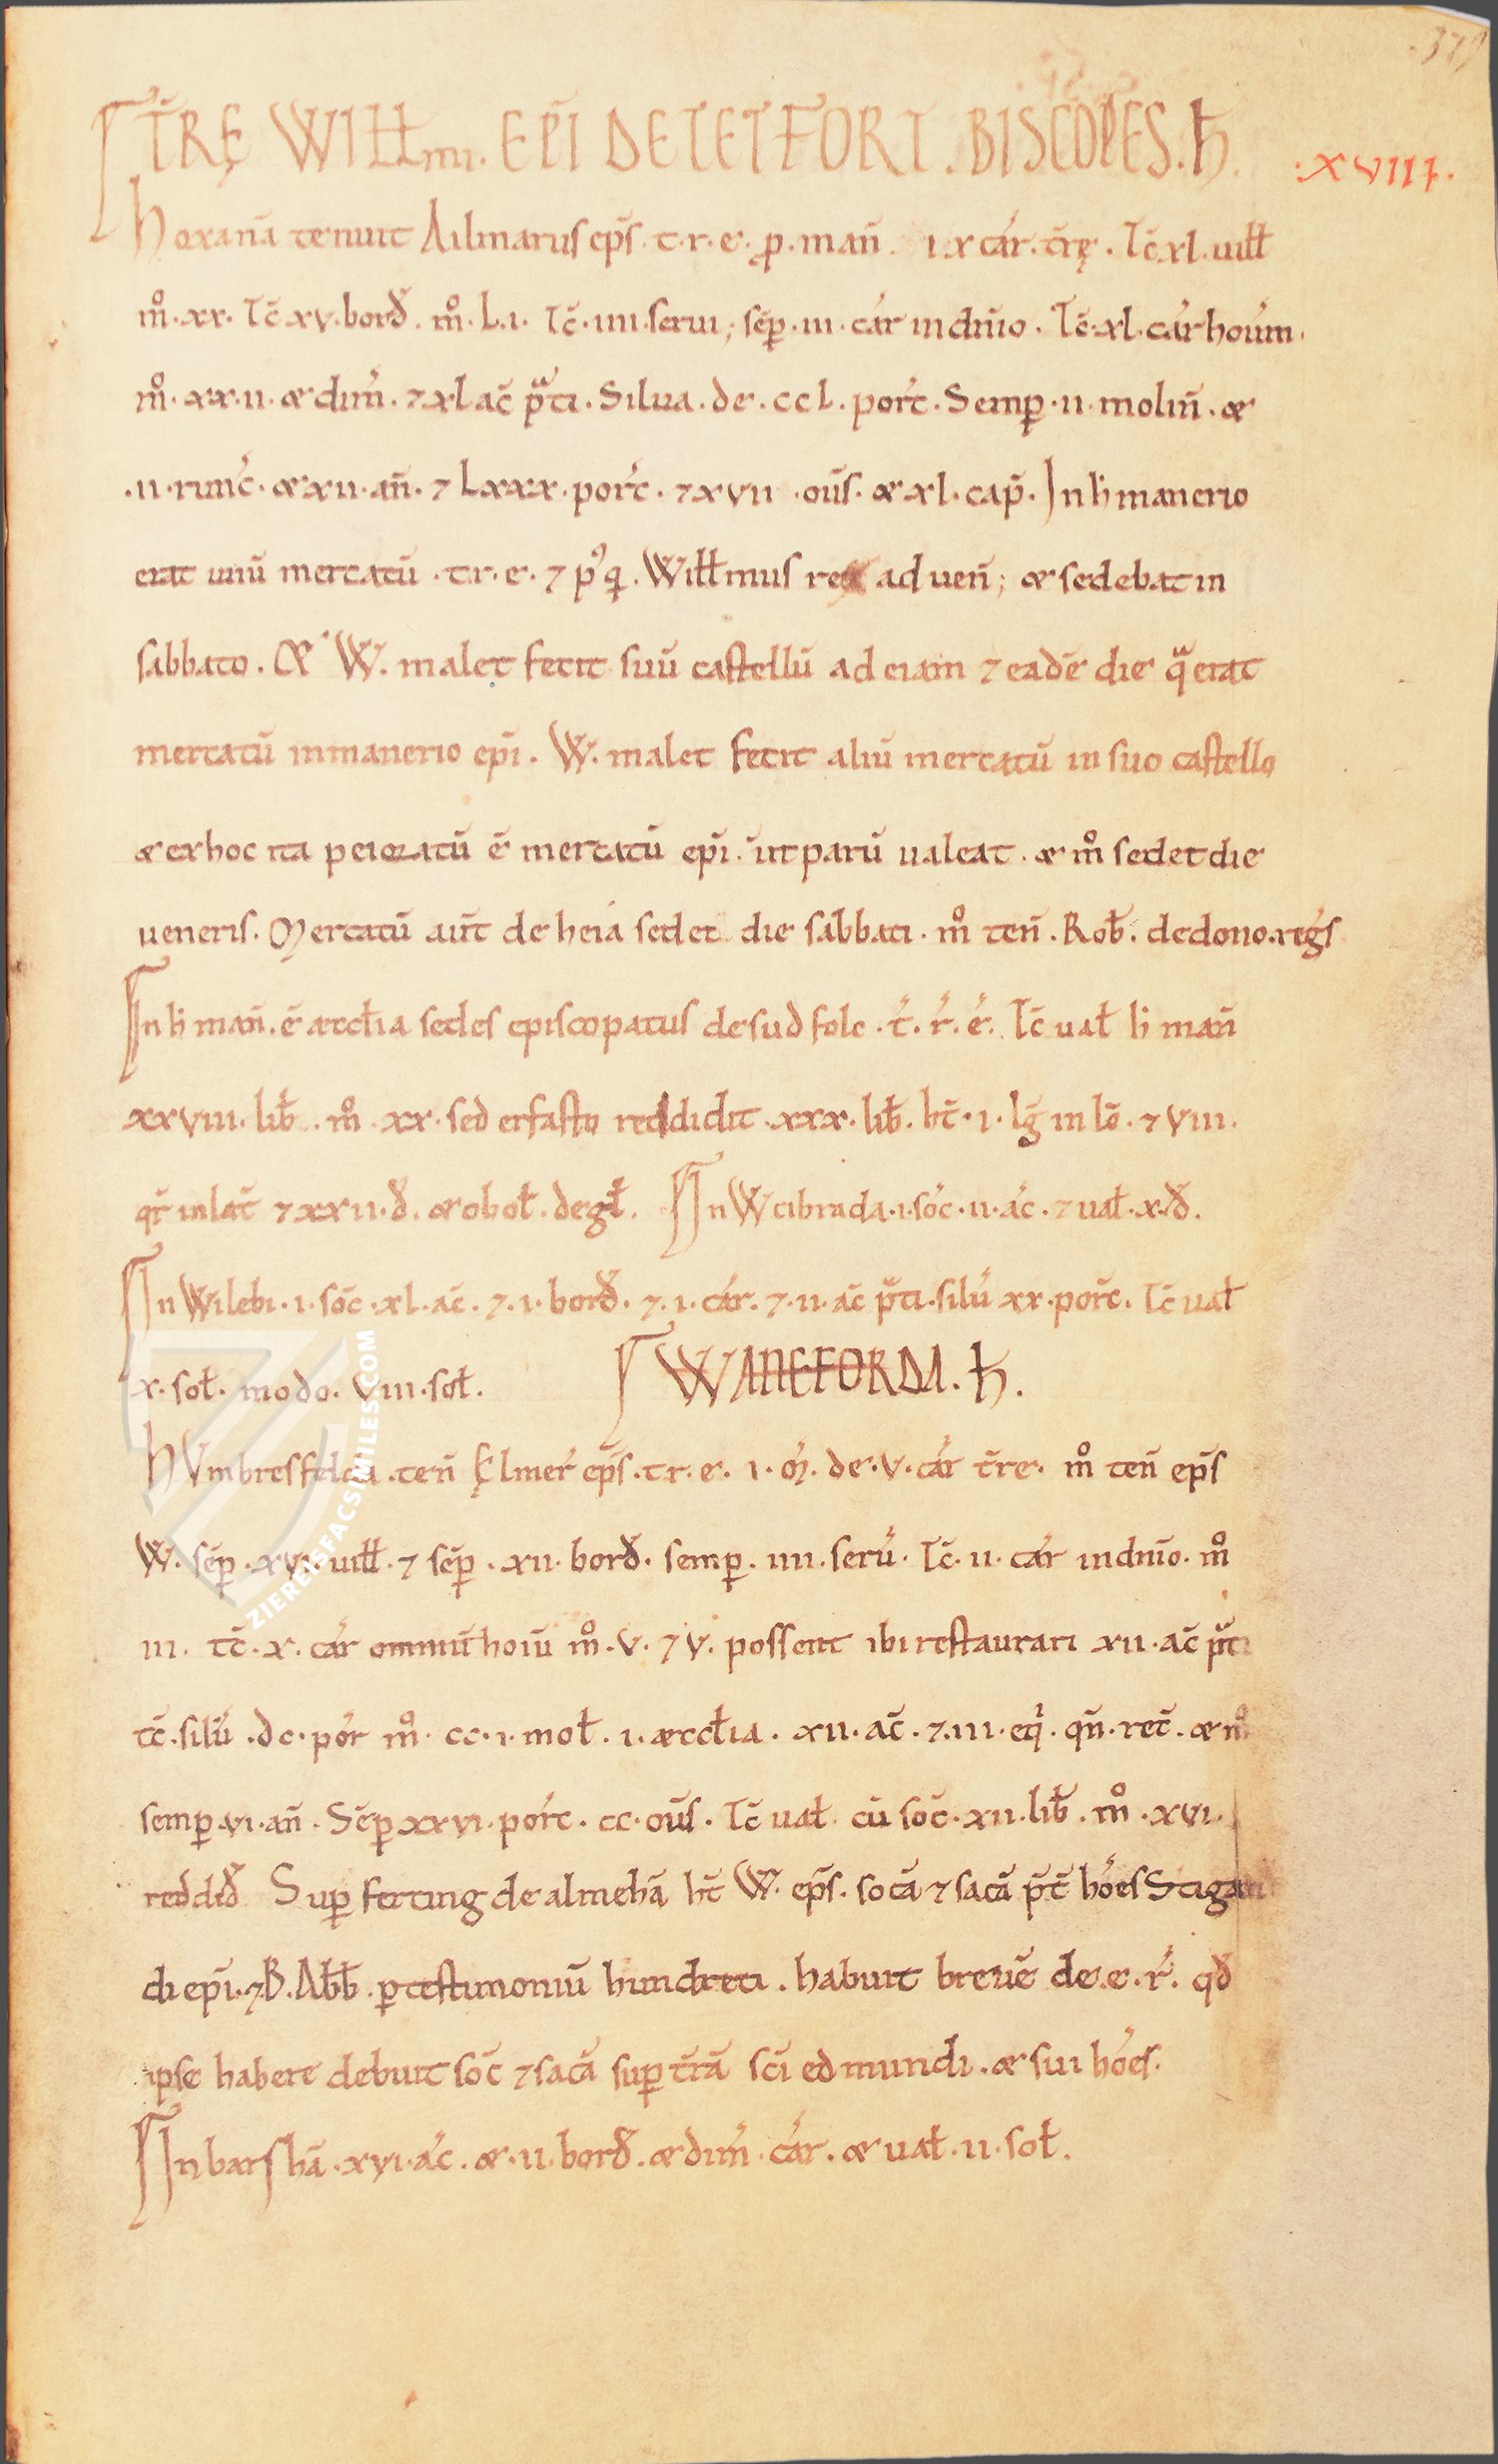 379
TR̄Ę WILŁmi. EP̄I DE TETFORT. BISCOPES. ħ.
·XVIII·
Hoxanā tenuit Ailmarus ep̄s. t. r. e. ꝓ. mañ. ix cár. tr̄ę. Tc̄ xl. uiłł
m̊. xx. Tc̄ xv. borđ. m̊. L. i. Tc̄. iiii. serui; sēp. iii. cár in dn̄io. Tc̄. xl. cár hoūm.
m̊. xx. ii. & dim̄. ⁊ xl ac̄ p̄ti. Silua. de. ccL. porc̄. Semp̱. ii. moliñ. &
.ii. runc̄. & xii. añ. ⁊ Lxxx. porc̄. ⁊ xvii. oūs. & xl. cap̄. In h̄ manerio
erat unū mercatū. t. r. e. ⁊ p᷒ q̨. Wiłłmus rex aduen̄; & sedebat in
sabbato. & W. malet fecit suū castellū ad eiam ⁊ eadē die q̄ erat
mercatū in manerio ep̄i. W. malet fecit aliū mercatū in suo castello
& ex hoc ita peioratū ē mercatū ep̄i. ut parū ualeat. & m̊ sedet die
ueneris. Mercatū aūt de heia sedet die sabbati. m̊ ten̄. Rob̄. de dono. regs
In h̄ mañ. ē æccłia sedes episcopatus de sudfolc. t́. ŕ. é. Tc̄ uał h̄ mañ
xxviii. lib̄. m̊. xx. sed erfasto reddidit. xxx. lib̄. ht̄. i. lḡ in lō. ⁊ viii.
qr̄ in lat̄ ⁊ xxii. đ. & oboł. de gł. In Wcibrada. i. soc̄. ii. ac̄. ⁊ uał. x. đ.
In Wilebi. i. soc̄. xl. ac̄. ⁊. i. borđ. ⁊. i. cár. ⁊. ii. ac̄ p̄ti. silū xx. porc̄. Tc̄ uał
x. soł. modo. viii. soł. WANEFORDA. ħ.
HVmbresfelda. ten̄ Ęlmer̄ ep̄s. t. r. e. i. ḿ. de. v. cár tr̄e. m̊ ten̄ ep̄s
W. sēp. xvi. uiłł. ⁊ sēp. xii. borđ. semp̱. iiii. serū. Tc̄. ii. cár in dn̄io. m̊
iii. tc̄. x. cár omniū hoiū m̊. v. ⁊ v. possent ibi restaurari xii. ac̄ p̄ti
tc̄. silū. dc. por̄ m̊. cc. i. moł. i. æccłia. xii. ac̄. ⁊. iii. eq̄. qn̄. rec̄. & m̊
semp̱. vi. añ. Sēp xxvi. porc̄. cc. oūs. Tc̄ uał. cū soc̄. xii. lib̄. m̊. xvi.
reddiđ Sup̱ ferting de almehā ht̄ W. ep̄s. socā ⁊ sacā p̄t hōes Stigan
di ep̄i. ⁊ B. Abb̄. p̱ testimoniū hundreti. habuit breuē de. e. ŕ. qđ
ipse habere debuit soc̄ ⁊ sacā sup̱ tr̄ā sc̄i edmundi. & sui hōes.
In barshā. xvi. ac̄. &. ii. borđ. & dim̄. cár. & uał. ii. soł.
ZIERERSFACSIMILES.COM